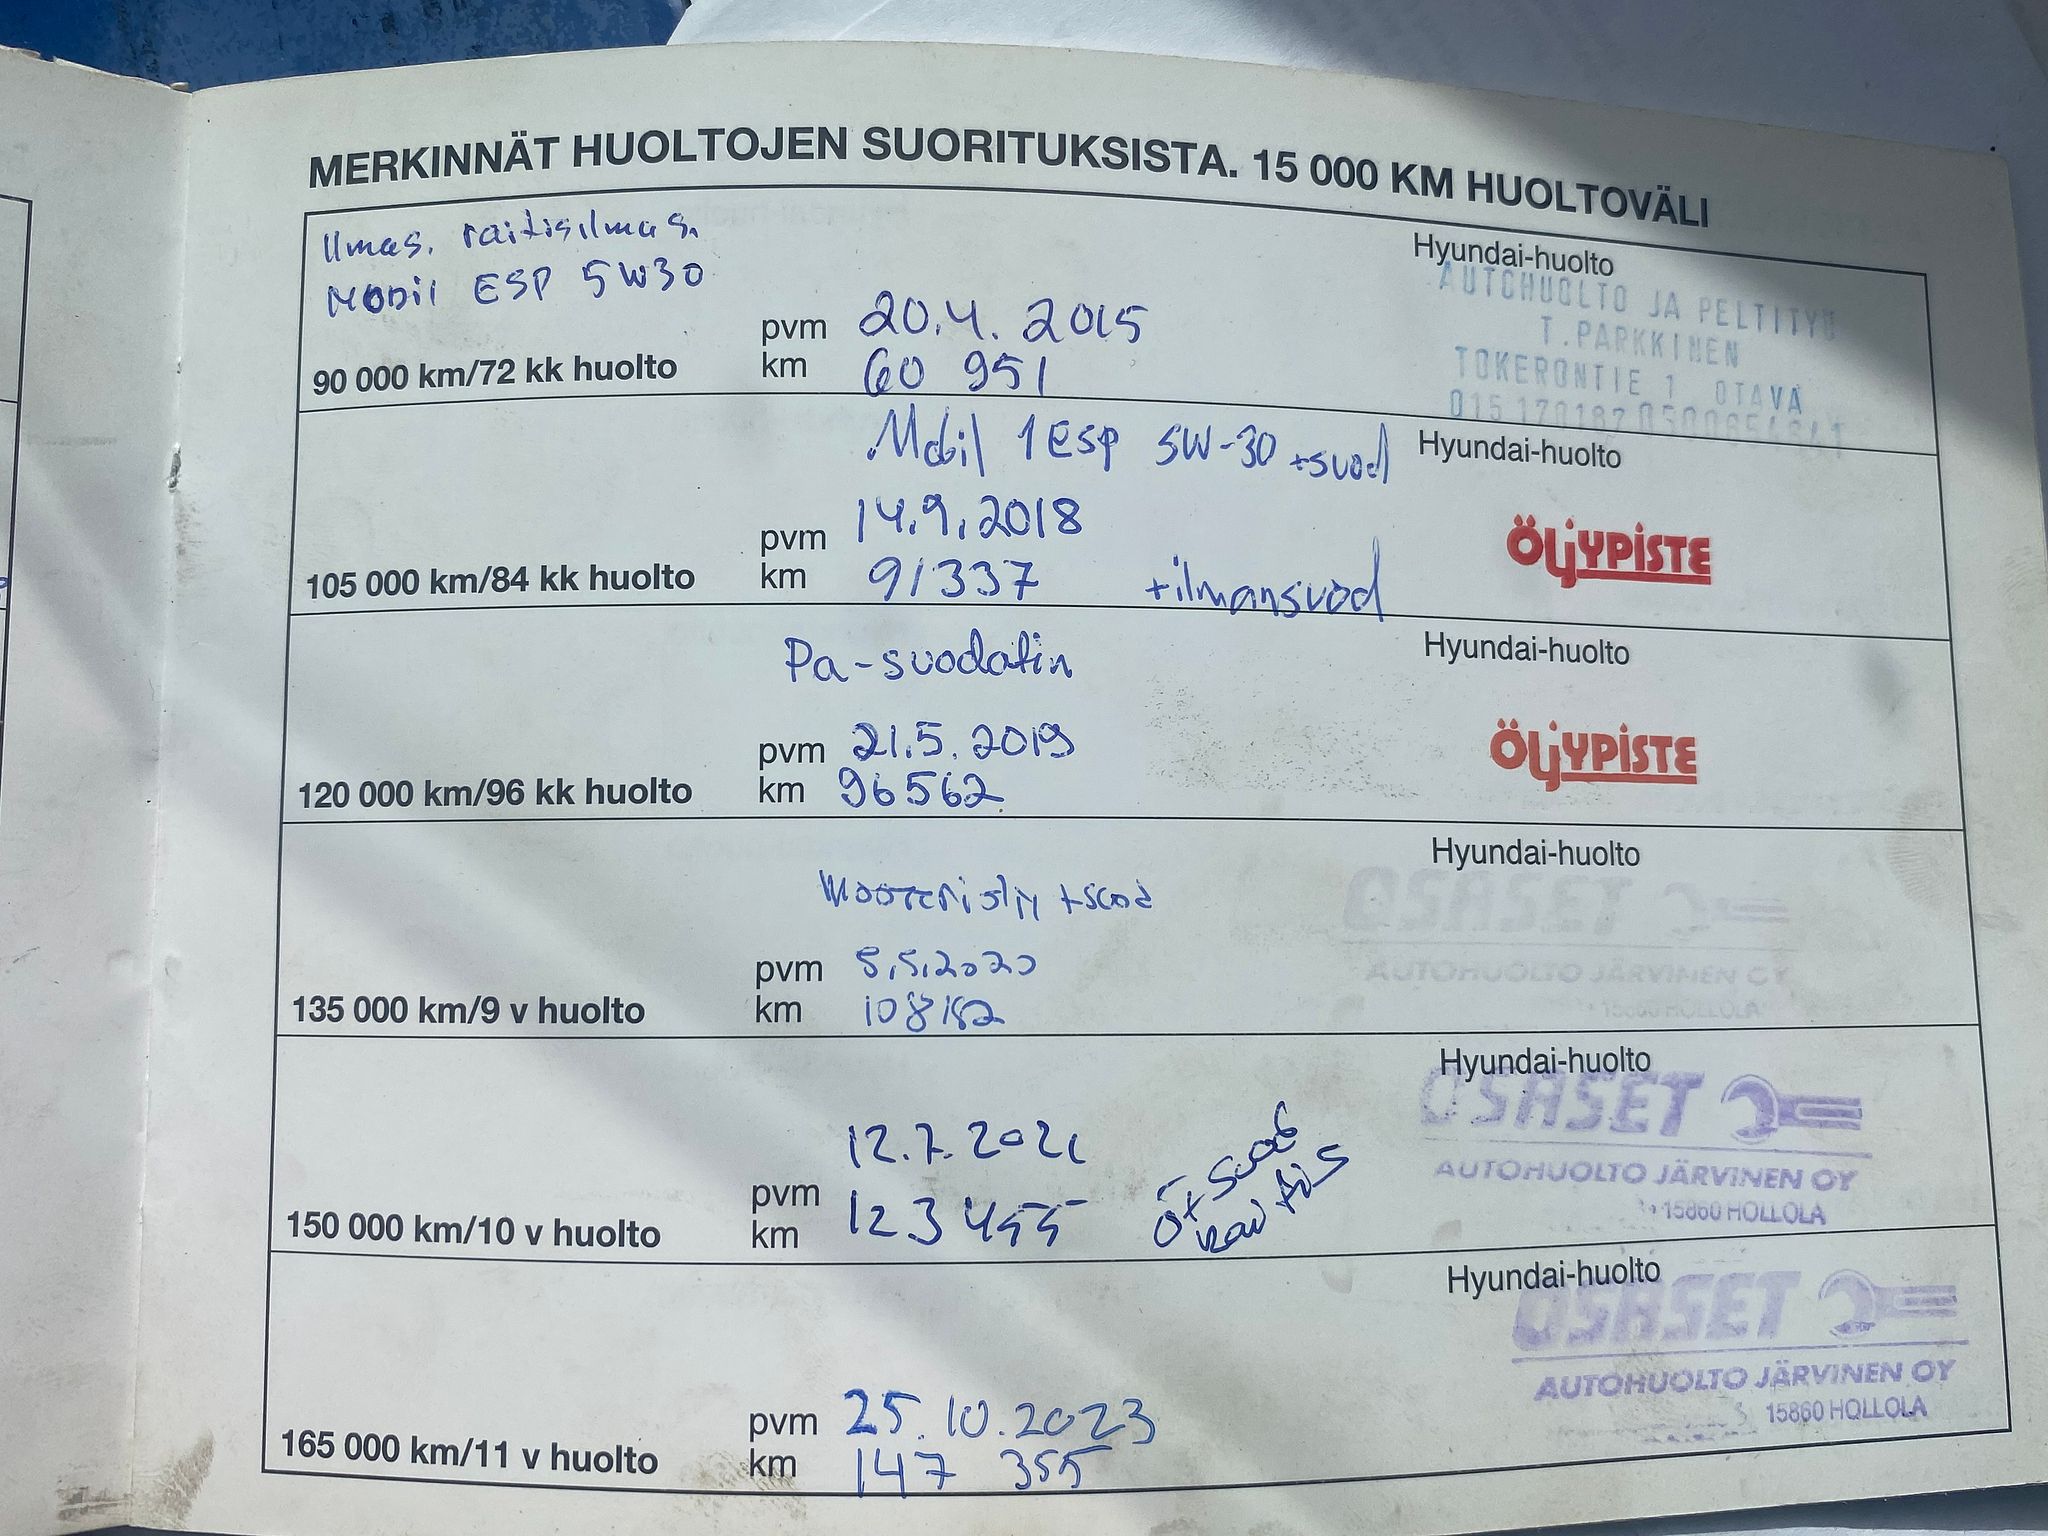 MERKINNÄT HUOLTOJEN SUORITUKSISTA. 15 000 KM HUOLTOVÄLI
Ilmas. raitisilmas.
Mobil ESP 5W30
90 000 km/72 kk huolto
pvm 20.4.2015
km 60 951
Hyundai-huolto
AUTOHUOLTO JA PELTITYÖ
T.PARKKINEN
TOKERONTIE 1 OTAVA
015 170187
Mobil 1 ESP 5W-30 +suod
105 000 km/84 kk huolto
pvm 14.9.2018
km 91337 +ilmansuod
Hyundai-huolto
ÖLJYPISTE
Pa-suodatin
120 000 km/96 kk huolto
pvm 21.5.2019
km 96562
Hyundai-huolto
ÖLJYPISTE
+suod
135 000 km/9 v huolto
pvm 8.5.2020
km 108182
Hyundai-huolto
OSASET
AUTOHUOLTO JÄRVINEN OY
15860 HOLLOLA
150 000 km/10 v huolto
pvm 12.7.2021
km 123455
Hyundai-huolto
OSASET
AUTOHUOLTO JÄRVINEN OY
15860 HOLLOLA
165 000 km/11 v huolto
pvm 25.10.2023
km 147 355
Hyundai-huolto
OSASET
AUTOHUOLTO JÄRVINEN OY
15860 HOLLOLA